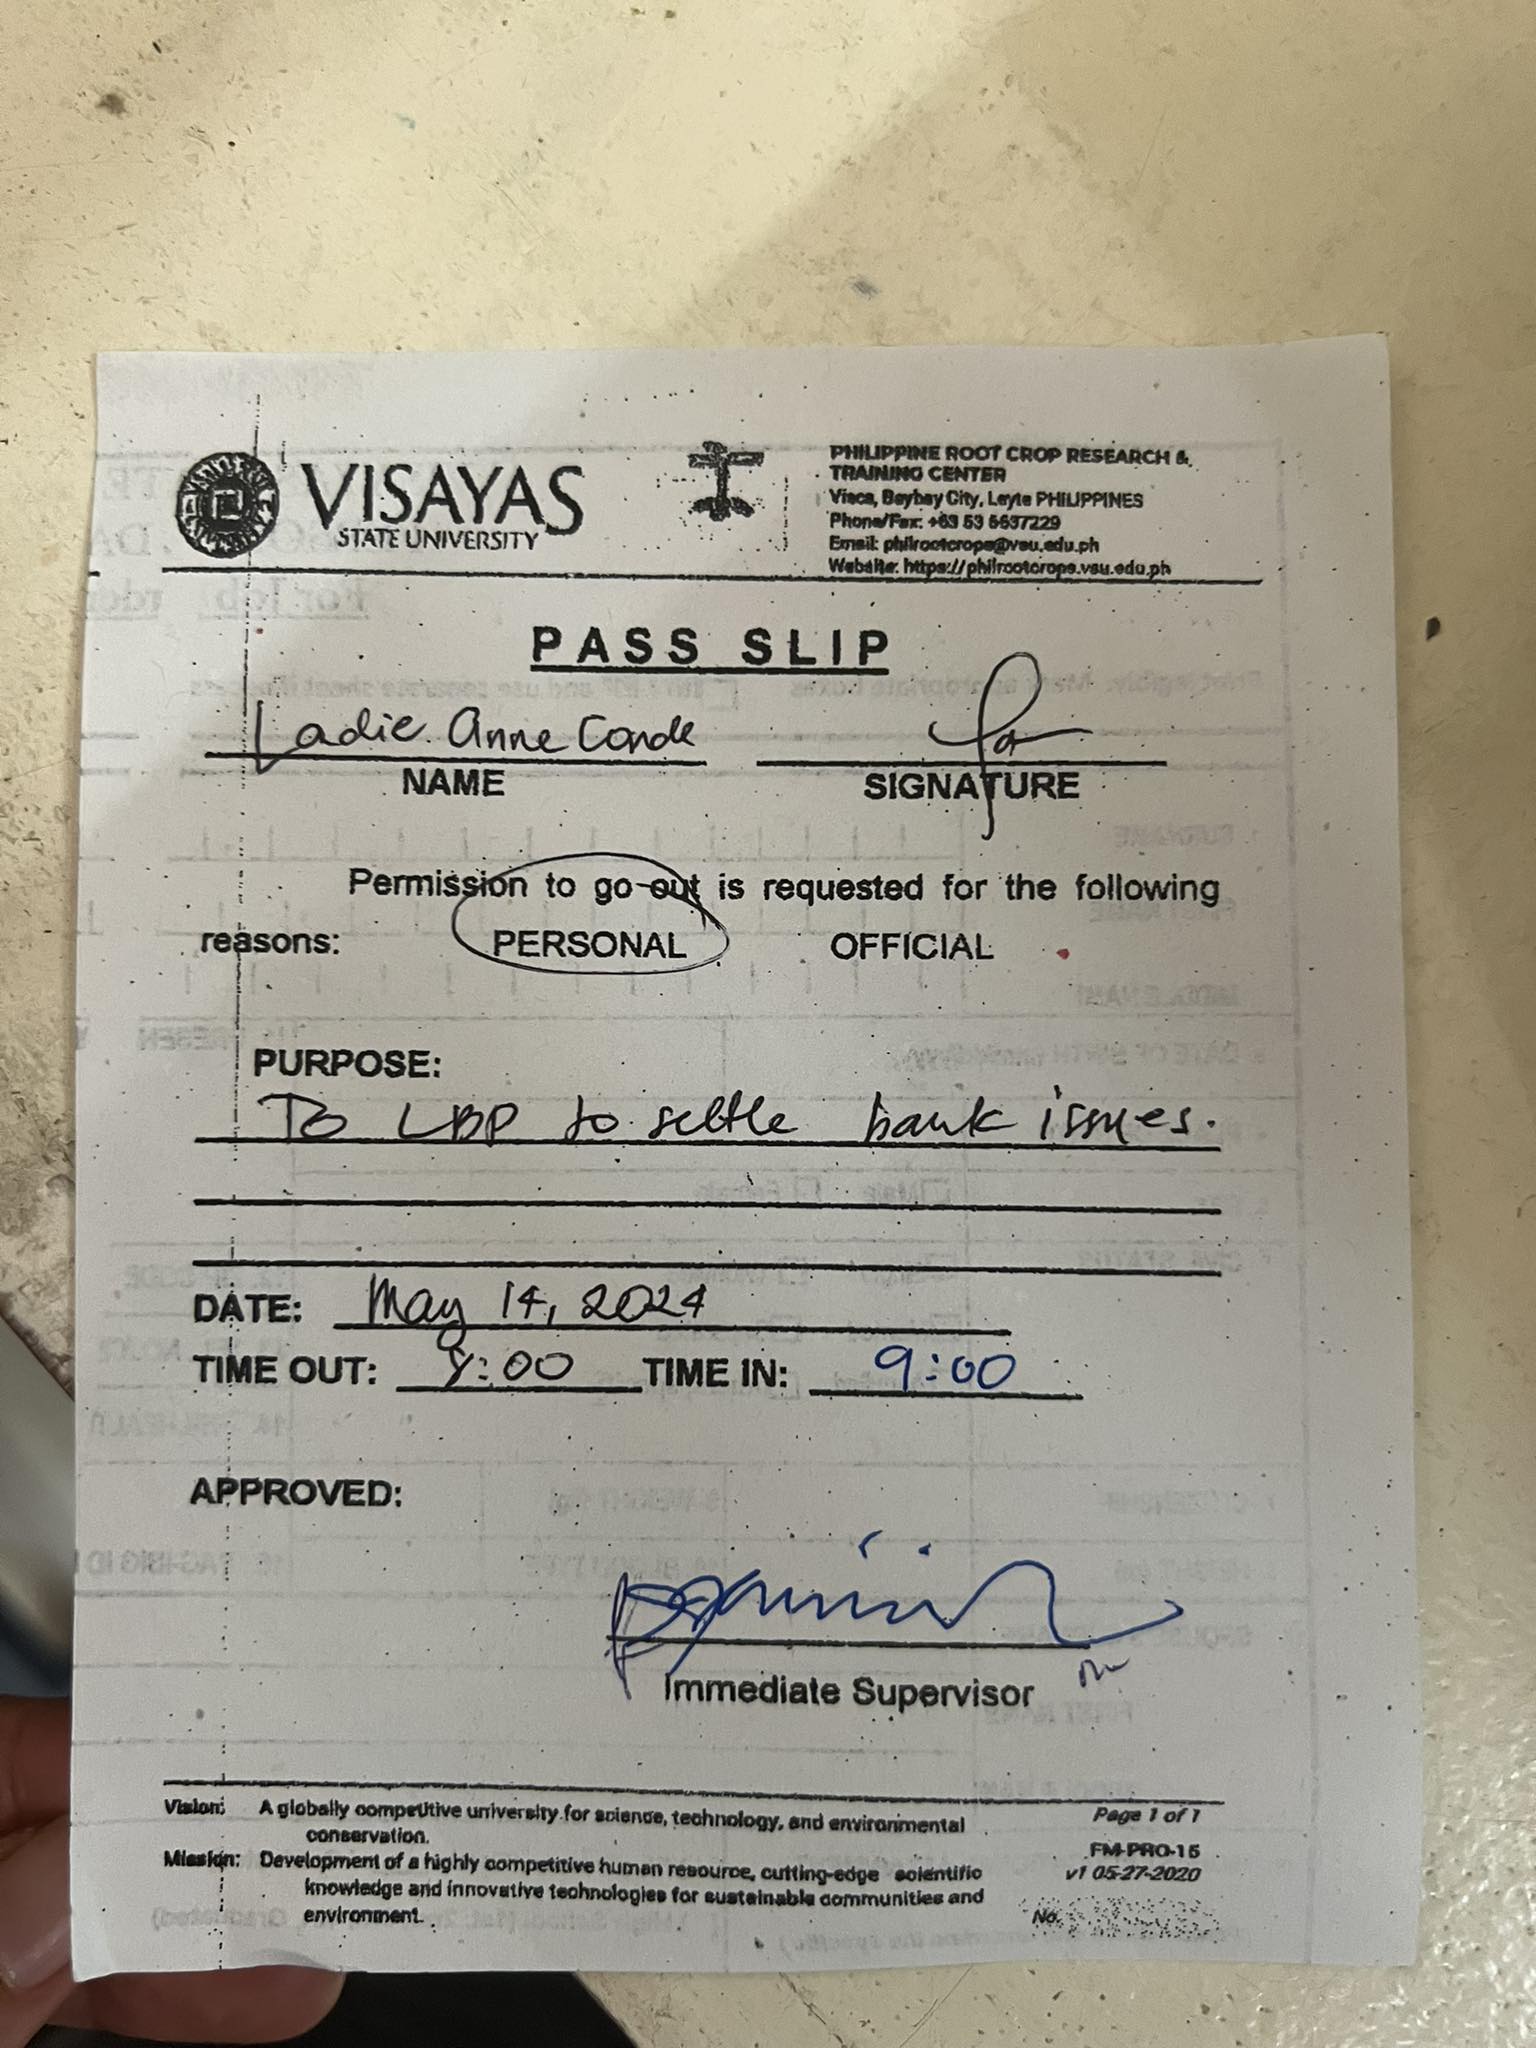 VISAYAS
STATE UNIVERSITY
PHILIPPINE ROOT CROP RESEARCH &
TRAINING CENTER
Visca, Baybay City, Leyte PHILIPPINES
Phone/Fax: +63 53 5637229
Email: philrootcrops@vsu.edu.ph
Website: https://philrootcrops.vsu.edu.ph
PASS SLIP
Ladie Anne Conde
NAME SIGNATURE
Permission to go out is requested for the following
reasons: PERSONAL OFFICIAL
PURPOSE:
To LBP to settle bank issues.
DATE: May 14, 2024
TIME OUT: 8:00 TIME IN: 9:00
APPROVED:
Immediate Supervisor
Vision: A globally competitive university for science, technology, and environmental
conservation.
Mission: Development of a highly competitive human resource, cutting-edge scientific
knowledge and innovative technologies for sustainable communities and
environment.
Page 1 of 1
FM-PRO-15
v1 05-27-2020
No.